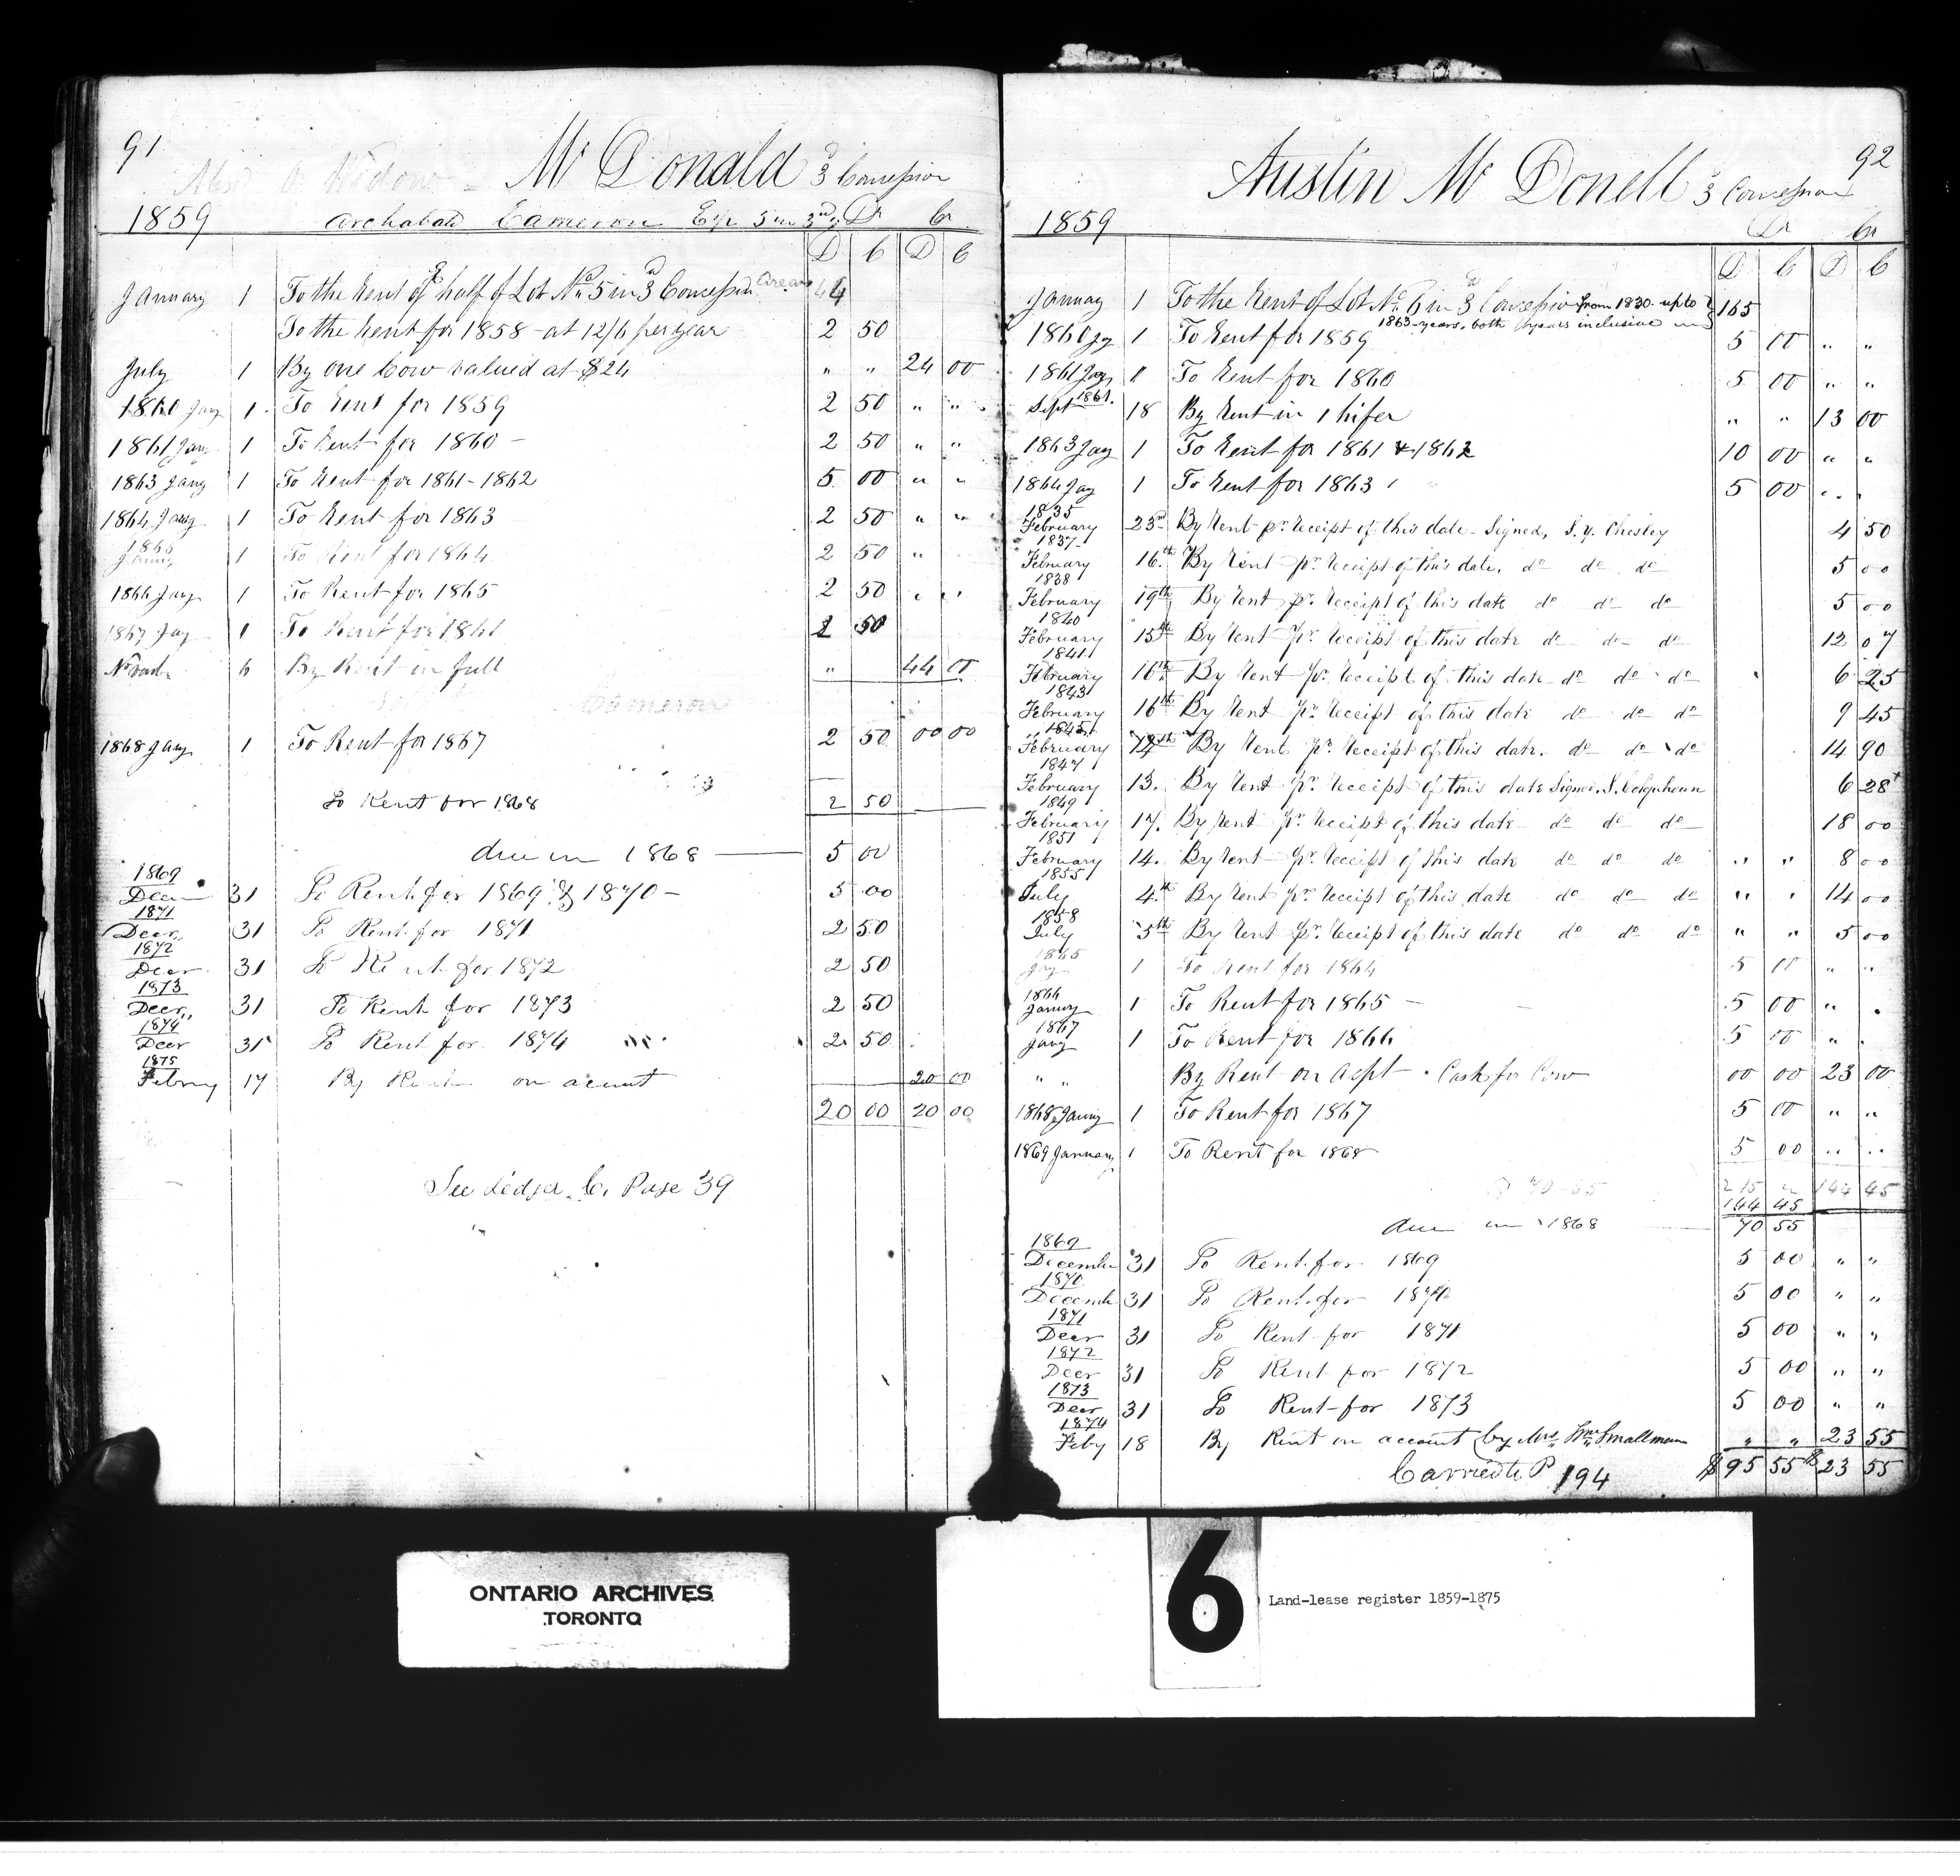 91
Widow McDonald 3 Concession
1859 Archabald Cameron E½ 5 in 3rd Dr Cr
D C D C
January 1 To the Rent of E half of Lot No 5 in 3d Concession Arears 44
To the Rent for 1858 at 12/6 per year 2 50
July 1 By one Cow valued at $24 " " 24 00
1860 Jay 1 To Rent for 1859 2 50 " "
1861 Jany 1 To Rent for 1860 - 2 50 " "
1863 Jany 1 To Rent for 1861-1862 5 00 " "
1864 Jany 1 To Rent for 1863 2 50 " "
1865
Janny 1 To Rent for 1864 2 50 "
1866 Jay 1 To Rent for 1865 2 50 " "
1867 Jay 1 To Rent for 1866 2 50
6 By Rent in full " 44 00
Cameron
1868 Jany 1 To Rent for 1867 2 50 00 00
To Rent for 1868 2 50
due in 1868 5 00
1869
Decm 31 To Rent for 1869 & 1870 - 5 00
1871
Decr, 31 To Rent for 1871 2 50
1872
Decr 31 To Rent for 1872 2 50
1873
Decr,, 31 To Rent for 1873 2 50
1874
Decr 31 To Rent for 1874 2 50
1875
Febrny 17 By Rent on acount 20 00
20 00 20 00
See Ledger C, Page 39
92
Austin McDonell 3 Concession
1859 Dr Cr
D C D C
January 1 To the Rent of Lot No 6 in 3d Concession from 1830 up to 165
1863 years, both years inclusive
1860 Jy 1 To Rent for 1859 5 00 " "
1861 Jay 1 To Rent for 1860 5 00 " "
Sept 1861. 18 By Rent in 1 hifer " " 13 00
1863 Jay 1 To Rent for 1861 & 1862 10 00 " "
1864 Jay 1 To Rent for 1863 5 00 " "
1835
February 23rd By Rent pr. Receipt of this date - Signed, S. Y. Chesley 4 50
1837
February 16th By Rent pr. Receipt of this date. do do do 5 00
1838
February 19th By Rent pr. Receipt of this date do do do 5 00
1840
February 15th By Rent pr. Receipt of this date do do do 12 07
1841
February 16th By Rent pr. Receipt of this date do do do 6 25
1843
February 16th By Rent pr. Receipt of this date do do do 9 45
1845
February By Rent pr. Receipt of this date. do do do 14 90
1847
February 13. By Rent pr. Receipt of this date Signed, S. Colquhoun 6 28
1849
February 17. By Rent pr. Receipt of this date do do do 18 00
1851
February 14. By Rent pr. Receipt of this date do do do " " 8 00
1855
July 4th By Rent pr. Receipt of this date do do do " " 14 00
1858
July 5th By Rent pr. Receipt of this date do do do " " 5 00
1865
Jay 1 To Rent for 1864 5 00 " "
1866
Janny 1 To Rent for 1865 - 5 00 "
1867
Jany 1 To Rent for 1866 5 00 "
" " By Rent on Aspt Cash for Cow 00 00 23 00
1868 Janny 1 To Rent for 1867 5 00 " "
1869 January 1 To Rent for 1868 5 00 " "
70-55 215 " 144 45
144 45
due in 1868 70 55
1869
December 31 To Rent for 1869 5 00 " "
1870
Decemb 31 To Rent for 1870 5 00 " "
1871
Decr 31 To Rent for 1871 5 00 " "
1872
Decr 31 To Rent for 1872 5 00 " "
1873
Decr 31 To Rent for 1873 5 00 " "
1874
Feby 18 By Rent on account by Mrs Wm Smallman " " 23 55
Carried to P 194 $95 55 $23 55
ONTARIO ARCHIVES
TORONTO
6
Land-lease register 1859-1875